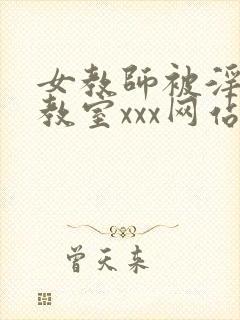 女教師被淫
教室xxx网佔
曾天来